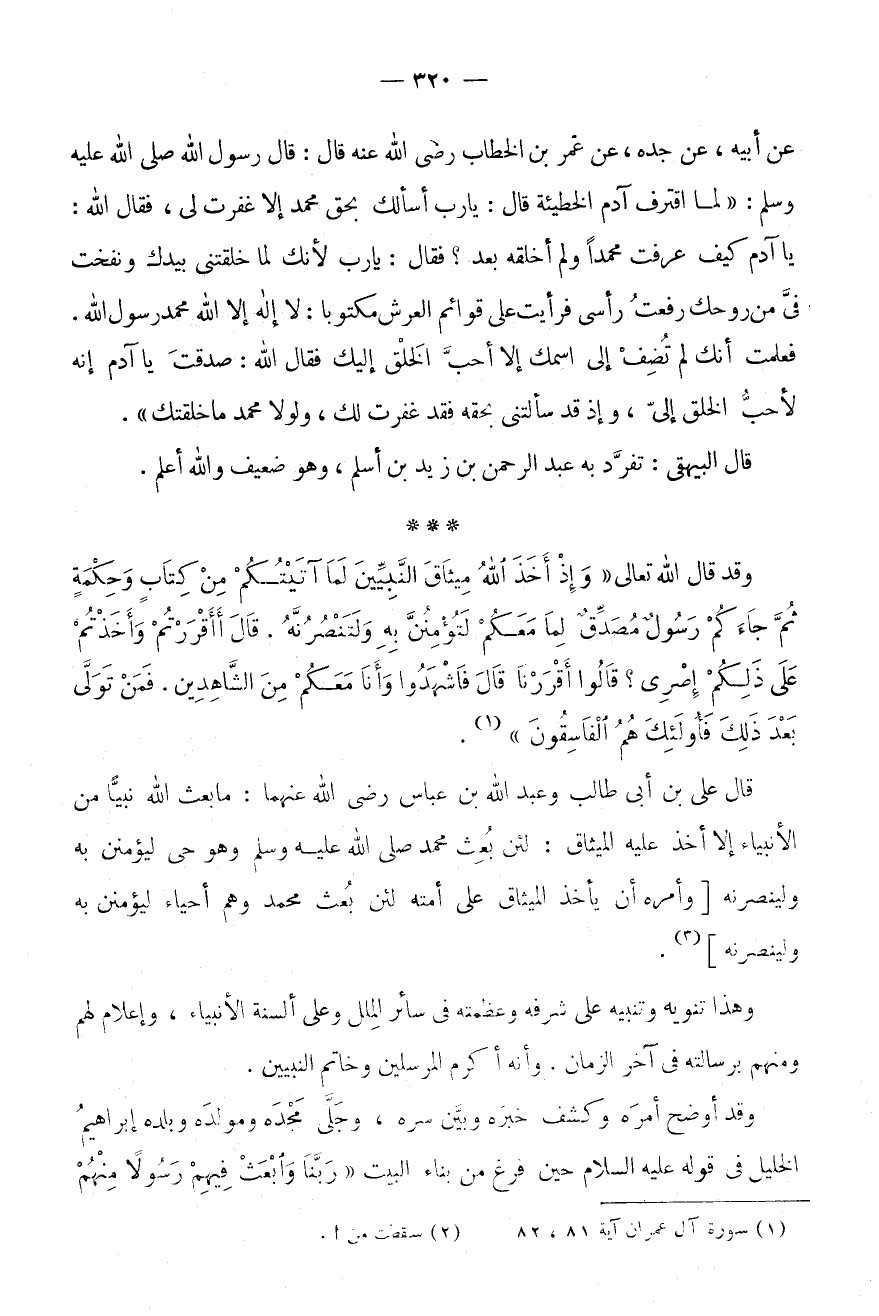 — ٣٢٠ —
عن أبيه ، عن جده ، عن عمر بن الخطاب رضى الله عنه قال : قال رسول الله صلى الله عليه
وسلم : « لمـا اقترف آدم الخطيئة قال : يارب أسألك بحق محمد إلا غفرت لى ، فقال الله :
يا آدم كيف عرفت محمداً ولم أخلقه بعد ؟ فقال : يارب لأنك لما خلقتنى بيدك ونفخت
فىَّ من روحك رفعتُ رأسى فرأيت على قوائم العرش مكتوبا : لا إله إلا الله محمد رسول الله .
فعلمت أنك لم تُضِفْ إلى اسمك إلا أحبَّ الخَلْق إليك فقال الله : صدقتَ يا آدم إنه
لأحبُّ الخلق إلىّ ، وإذ قد سألتنى بحقه فقد غفرت لك ، ولولا محمد ماخلقتك » .
قال البيهقى : تفرَّد به عبد الرحمن بن زيد بن أسلم ، وهو ضعيف والله أعلم .
***
وقد قال الله تعالى « وَإِذْ أَخَذَ ٱللهُ مِيثَاقَ النَّبِيِّينَ لَمَا آتَيْتُـكُمْ مِنْ كِتَابٍ وَحِكْمَةٍ
ثُمَّ جَاءَكُمْ رَسُولٌ مُصَدِّقٌ لِمَا مَعَـكُمْ لَتُؤْمِنُنَّ بِهِ وَلَتَنْصُرُنَّهُ . قَالَ أَأَقْرَرْتُمْ وَأَخَذْتُمْ
عَلَى ذَلِـكُمْ إِصْرِى ؟ قَالُوا أَقْرَرْنَا قَالَ فَاشْهَدُوا وَأَنَا مَعَـكُمْ مِنَ الشَّاهِدِين . فَمَنْ تَوَلَّى
بَعْدَ ذَلِكَ فَأُولَئِكَ هُمُ ٱلْفَاسِقُونَ » (١) .
قال على بن أبى طالب وعبد الله بن عباس رضى الله عنهما : مابعث الله نبيًّا من
الأنبياء إلا أخذ عليه الميثاق : لئن بُعِث محمد صلى الله عليـه وسلم وهو حى ليؤمنن به
ولينصرنه [ وأمره أن يأخذ الميثاق على أمته لئن بُعث محمد وهم أحياء ليؤمنن به
ولينصرنه ] (٣) .
وهذا تنويه وتنبيه على شرفه وعظمته فى سائر المِلل وعلى ألسنة الأنبياء ، وإعلام لهم
ومنهم برسالته فى آخر الزمان . وأنه أكرم المرسلين وخاتم النبيين .
وقد أوضح أمرَه وكشف خبرَه وبيَّن سره ، وجَلَّى مَجْدَه ومولدَه وبلده إبراهيمُ
الخليل فى قوله عليه السلام حين فرغ من بناء البيت « رَبَّنَا وَٱبْعَثْ فِيهِمْ رَسُولًا مِنْهُمْ
(١) سورة آل عمران آية ٨١ ، ٨٢ (٢) سقطت من ا .